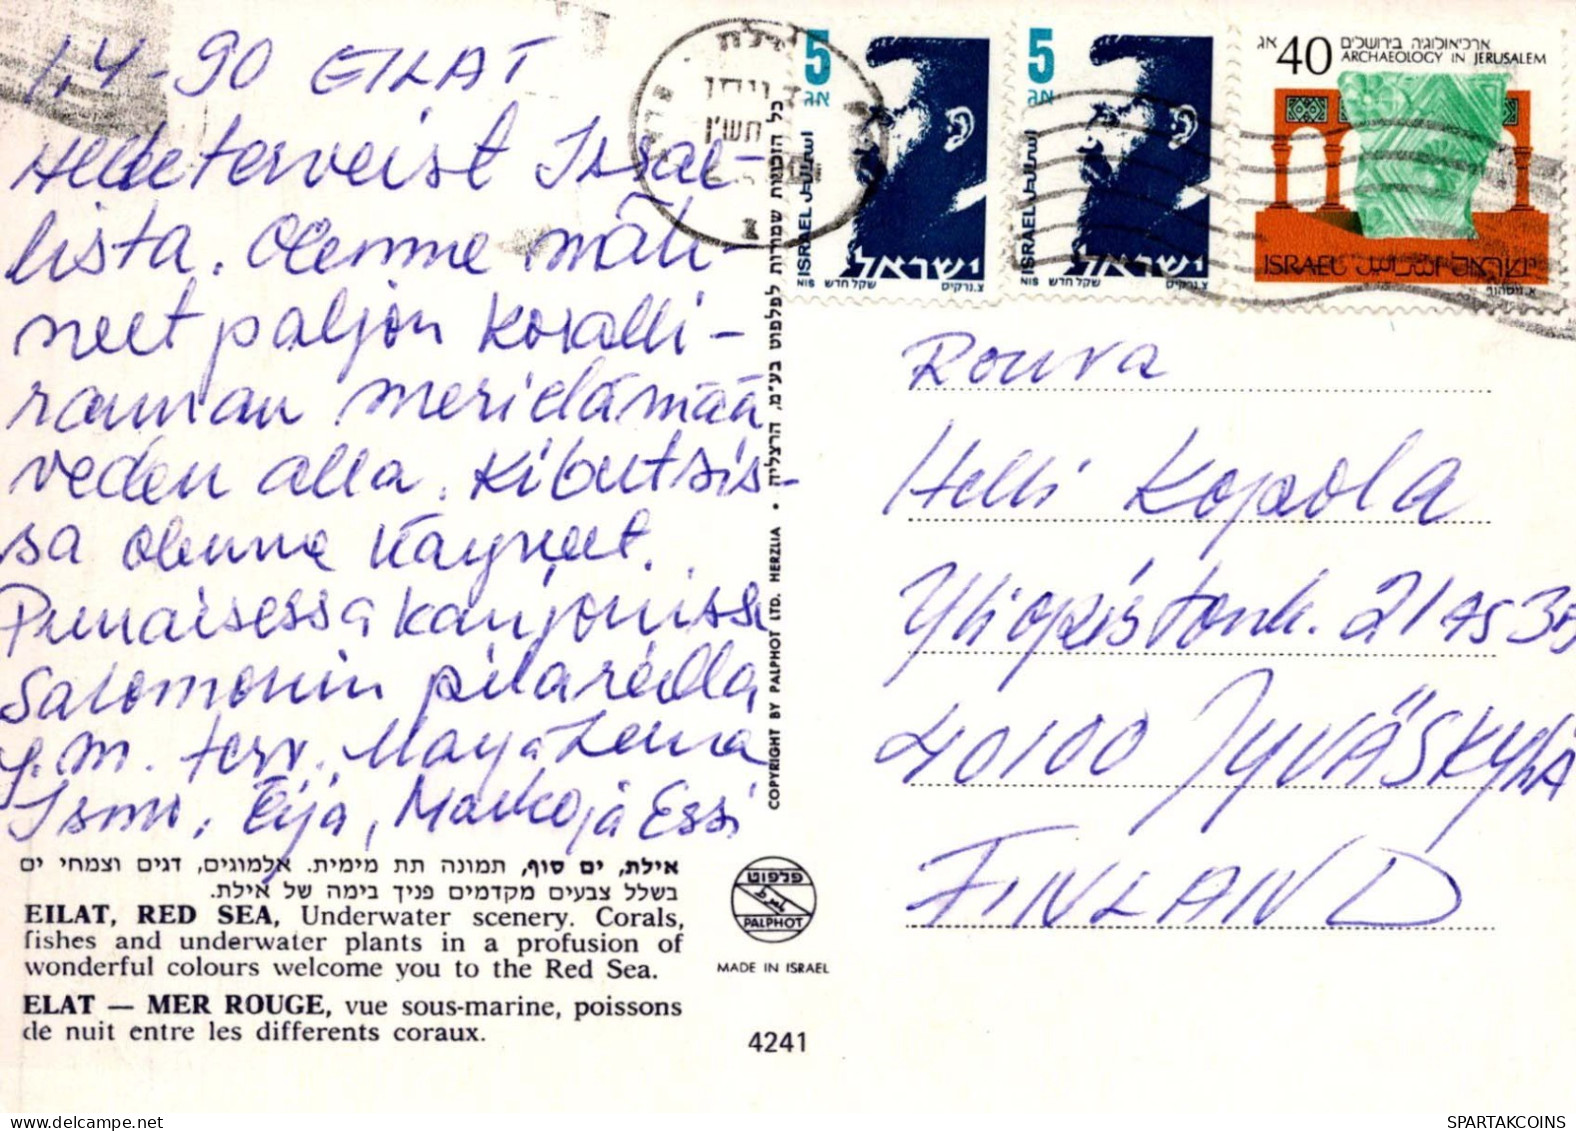 1.4-90 EILAT
Hedeterveist Israe-
lista. Olemme näh-
neet paljon koralli-
rannan merielämää
veden alla. Kibutsis-
sa olemme käyneet.
Punaisessa kanjonissa
Salomonin pilareilla
y.m. terv. Marja Leena
Ismo, Eija, Marko ja Essi
אילת, ים סוף, תמונה תת מימית. אלמוגים, דגים וצמחי ים
בשלל צבעים מקדמים פניך בימה של אילת.
EILAT, RED SEA, Underwater scenery. Corals,
fishes and underwater plants in a profusion of
wonderful colours welcome you to the Red Sea.
ELAT — MER ROUGE, vue sous-marine, poissons
de nuit entre les differents coraux.
כל הזכויות שמורות לפלפוט בע״מ, הרצליה • COPYRIGHT BY PALPHOT LTD. HERZLIA
פלפוט
PALPHOT
MADE IN ISRAEL
4241
אילת
תש״ן
5
אג
ISRAEL اسرائيل
ישראל
NIS שקל חדש צ. נרקיס
5
אג
ISRAEL اسرائيل
ישראל
NIS שקל חדש צ. נרקיס
אג 40 ארכיאולוגיה בירושלים
ARCHAEOLOGY IN JERUSALEM
ISRAEL اسرائيل ישראל
Rouva
Helli Kopola
Yliopistonk. 21 AS 3B
40100 JYVÄSKYLÄ
FINLAND
SPARTAKCOINS